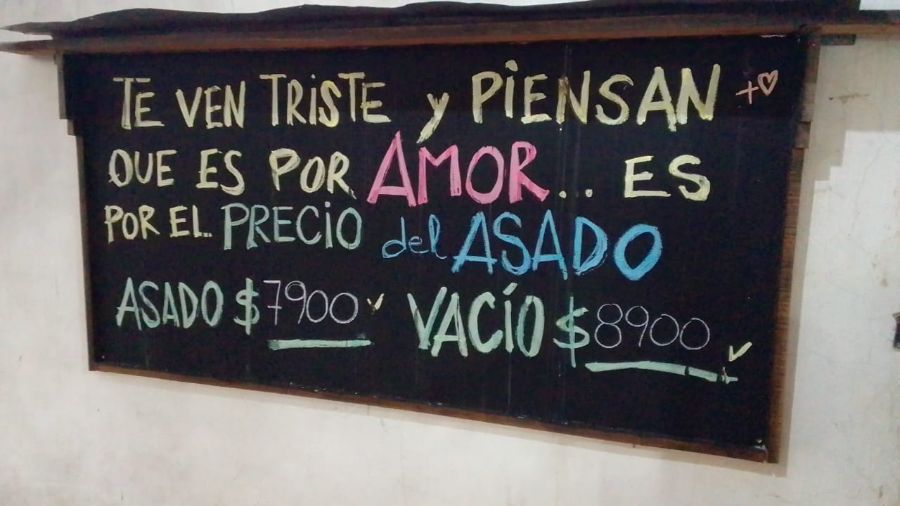 TE VEN TRISTE y PIENSAN +♡
QUE ES POR AMOR... ES
POR EL.. PRECIO del ASADO
ASADO $7900 VACÍO $8900